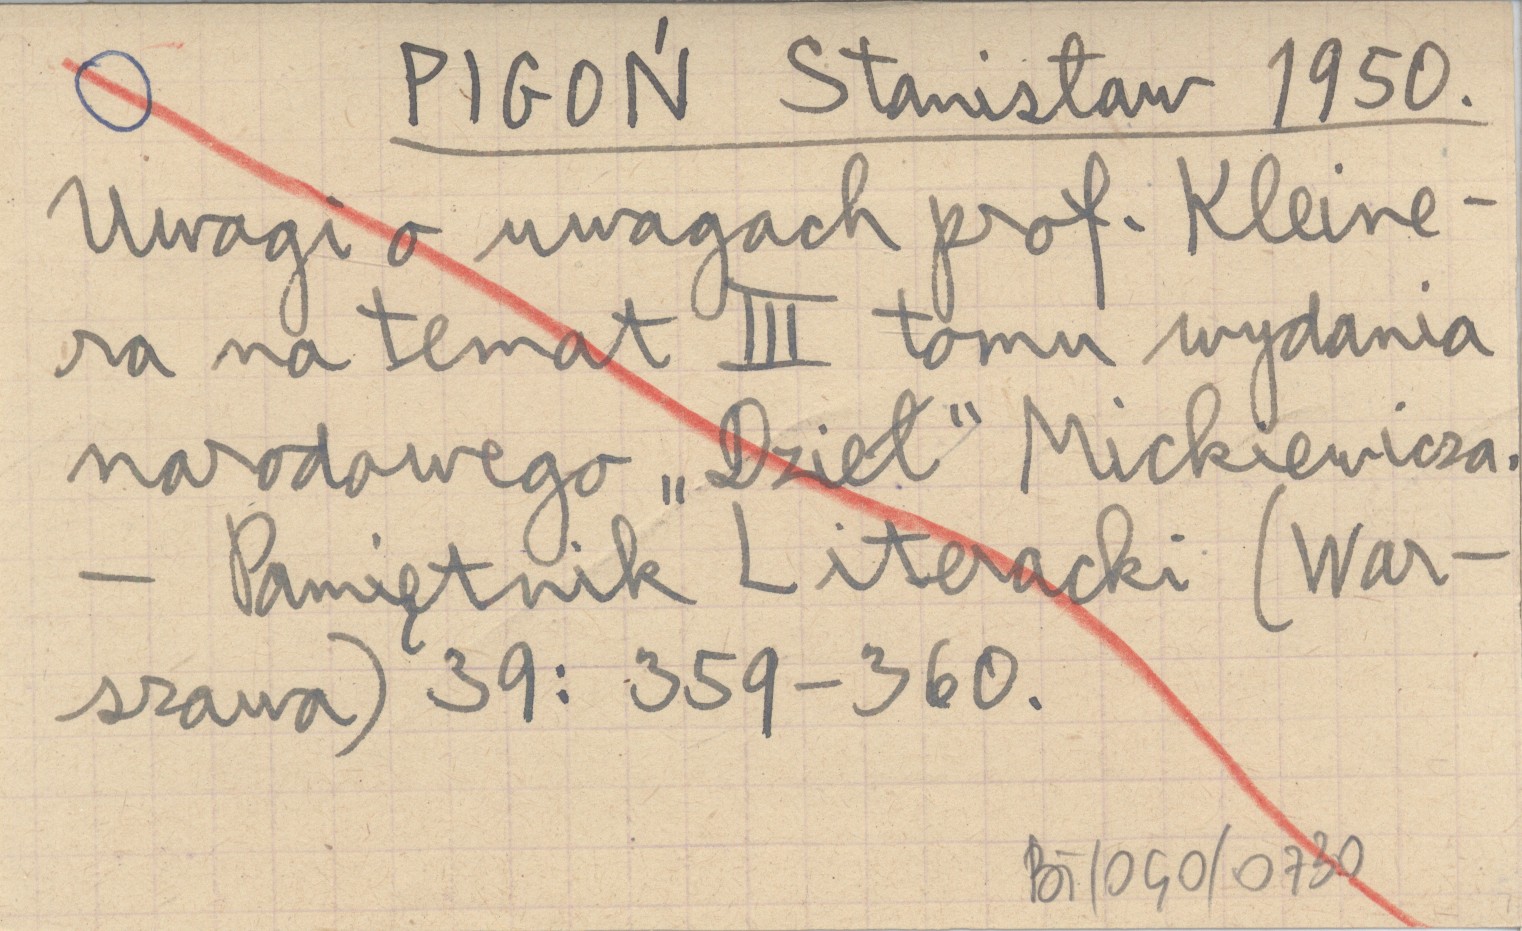 PIGOŃ Stanisław 1950.
Uwagi o uwagach prof. Kleine-
ra na temat III tomu wydania
narodowego „Dzieł“ Mickiewicza.
— Pamiętnik Literacki (War-
szawa) 39: 359-360.
BT/OGO/0730